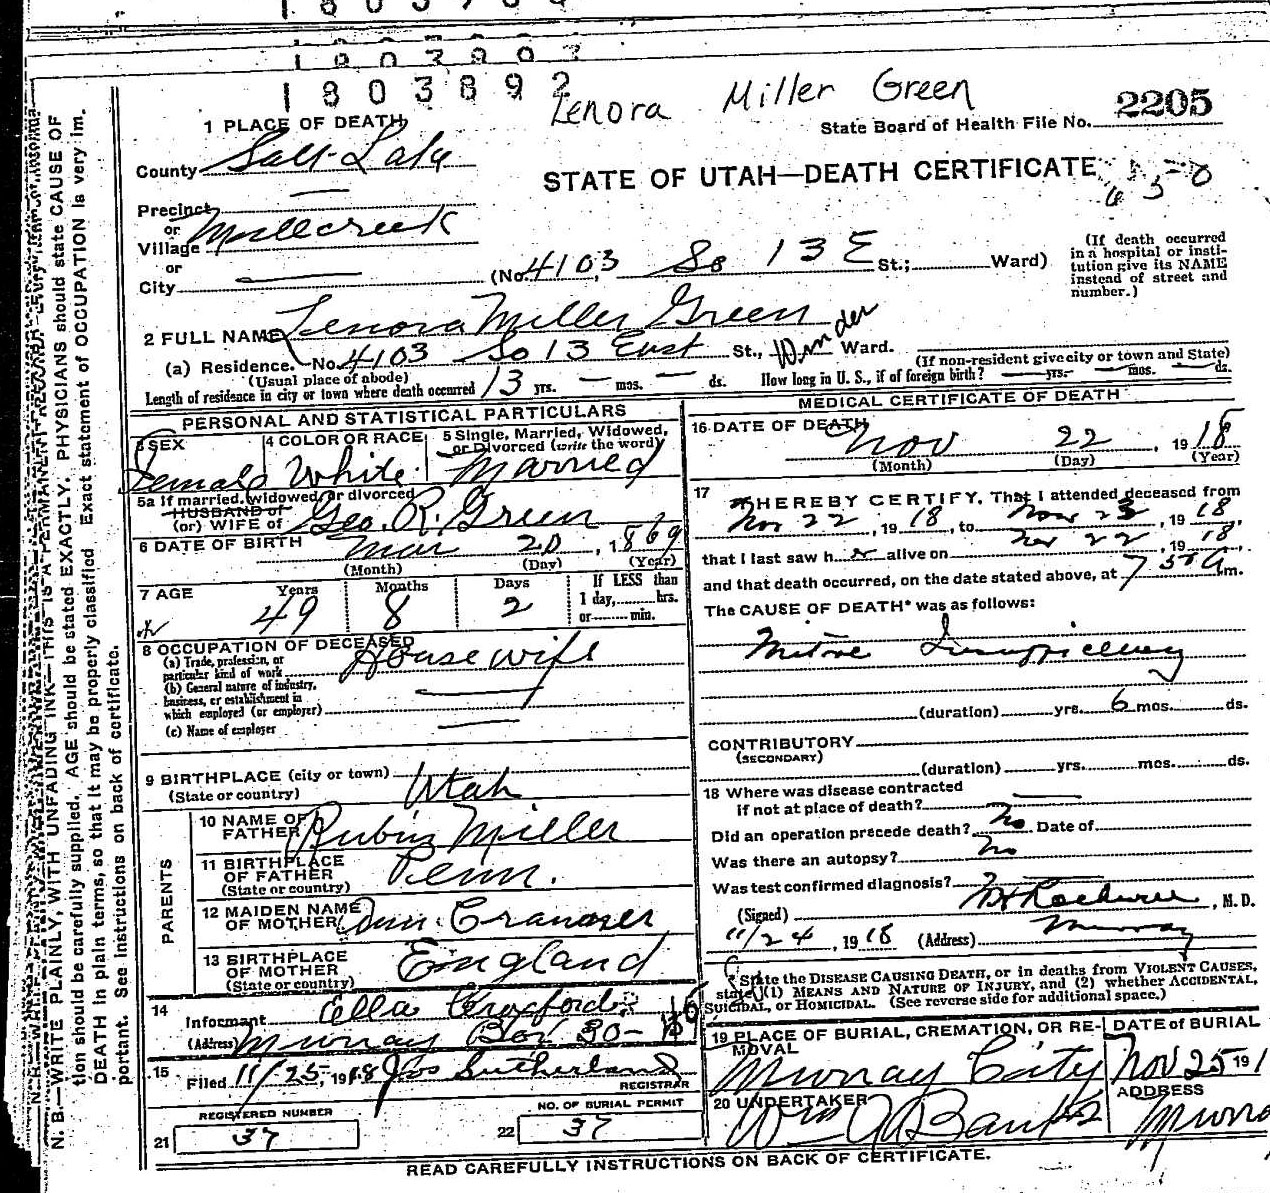 1803892
Lenora Miller Green
State Board of Health File No. 2205
1 PLACE OF DEATH
County Salt Lake
STATE OF UTAH—DEATH CERTIFICATE
Precinct
or
Village Millcreek
or
City
(No. 4103 So 13 E St.; Ward)
(If death occurred
in a hospital or insti-
tution give its NAME
instead of street and
number.)
2 FULL NAME Lenora Miller Green
(a) Residence. No. 4103 So 13 East St., Winder Ward.
(Usual place of abode)
(If non-resident give city or town and State)
Length of residence in city or town where death occurred 13 yrs. — mos. — ds.
How long in U. S., if of foreign birth? — yrs. — mos. — ds.
PERSONAL AND STATISTICAL PARTICULARS
3 SEX
Female
4 COLOR OR RACE
White
5 Single, Married, Widowed,
or Divorced (write the word)
Married
5a If married, widowed, or divorced
HUSBAND of
(or) WIFE of Geo. R. Green
6 DATE OF BIRTH Mar 20, 1869
(Month) (Day) (Year)
7 AGE Years Months Days
49 8 2
If LESS than
1 day, hrs.
or min.
8 OCCUPATION OF DECEASED
(a) Trade, profession, or
particular kind of work Housewife
(b) General nature of industry,
business, or establishment in
which employed (or employer)
(c) Name of employer
9 BIRTHPLACE (city or town)
(State or country) Utah
PARENTS
10 NAME OF
FATHER Rubin Miller
11 BIRTHPLACE
OF FATHER
(State or country) Penn.
12 MAIDEN NAME
OF MOTHER Ann
13 BIRTHPLACE
OF MOTHER
(State or country) England
14
Informant Ella Croxford
(Address) Murray Box 30-
15 Filed 11/25, 1918 Jos Sutherland
REGISTRAR
REGISTERED NUMBER
21 37
NO. OF BURIAL PERMIT
22 37
MEDICAL CERTIFICATE OF DEATH
16 DATE OF DEATH
Nov 22, 1918
(Month) (Day) (Year)
17
I HEREBY CERTIFY, That I attended deceased from
Nov 22, 1918, to Nov 23, 1918
that I last saw h alive on Nov 22, 1918,
and that death occurred, on the date stated above, at 7 50 a m.
The CAUSE OF DEATH* was as follows:
Insufficiency
(duration) yrs. 6 mos. ds.
CONTRIBUTORY
(SECONDARY)
(duration) yrs. mos. ds.
18 Where was disease contracted
if not at place of death?
Did an operation precede death? No Date of
Was there an autopsy? no
Was test confirmed diagnosis?
(Signed) , M. D.
11/24, 1918 (Address) Murray
State the DISEASE CAUSING DEATH, or in deaths from VIOLENT CAUSES,
state (1) MEANS AND NATURE OF INJURY, and (2) whether ACCIDENTAL,
SUICIDAL, or HOMICIDAL. (See reverse side for additional space.)
19 PLACE OF BURIAL, CREMATION, OR RE-
MOVAL
Murray City
DATE OF BURIAL
Nov 25 191
20 UNDERTAKER
Wm
ADDRESS
READ CAREFULLY INSTRUCTIONS ON BACK OF CERTIFICATE.
N. B.—WRITE PLAINLY, WITH UNFADING INK—THIS IS A PERMANENT RECORD.
tion should be carefully supplied. AGE should be stated EXACTLY. PHYSICIANS should state CAUSE OF
DEATH in plain terms, so that it may be properly classified. Exact statement of OCCUPATION is very im-
portant. See instructions on back of certificate.